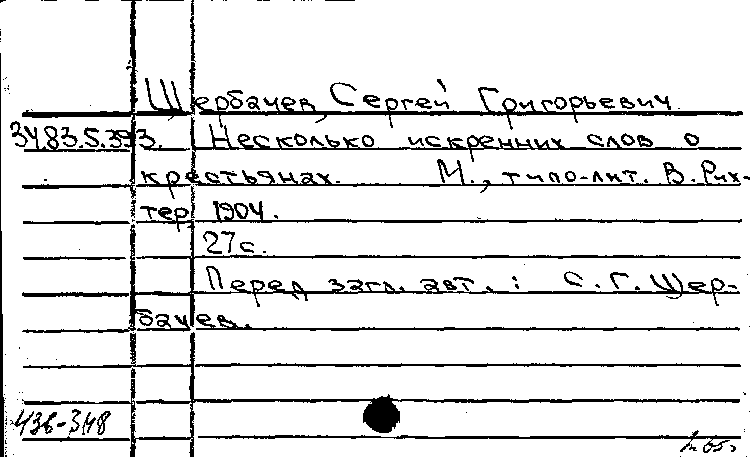 Щербачев, Сергей Григорьевич.
3483.5.393. Несколько искренних слов о
крестьянах. М., типо-лит. В. Рих-
тер, 1904.
27с.
Перед загл. авт.: С. Г. Щер-
бачев.
436-348